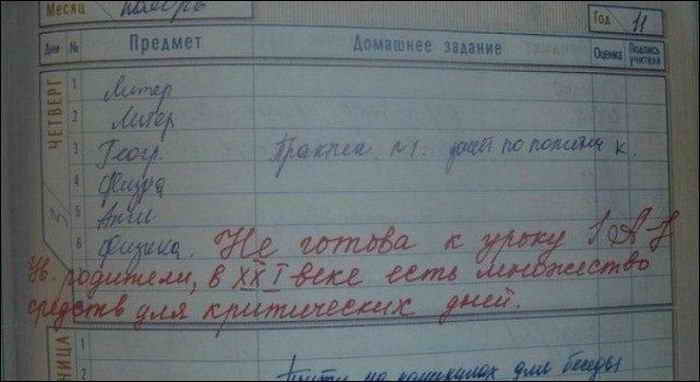 Месяц ноябрь Год 11
Дни № Предмет Домашнее задание Оценка Подпись учителя
ЧЕТВЕРГ
1 Литер
2 Литер
3 Геогр. Практич. по
4 Физра
5 Англ
6 Физика. Не готова к уроку
Ув. родители, в XXI веке есть множество
средств для критических дней.
НИЦА
1
2 Прийти на каникулах для беседы